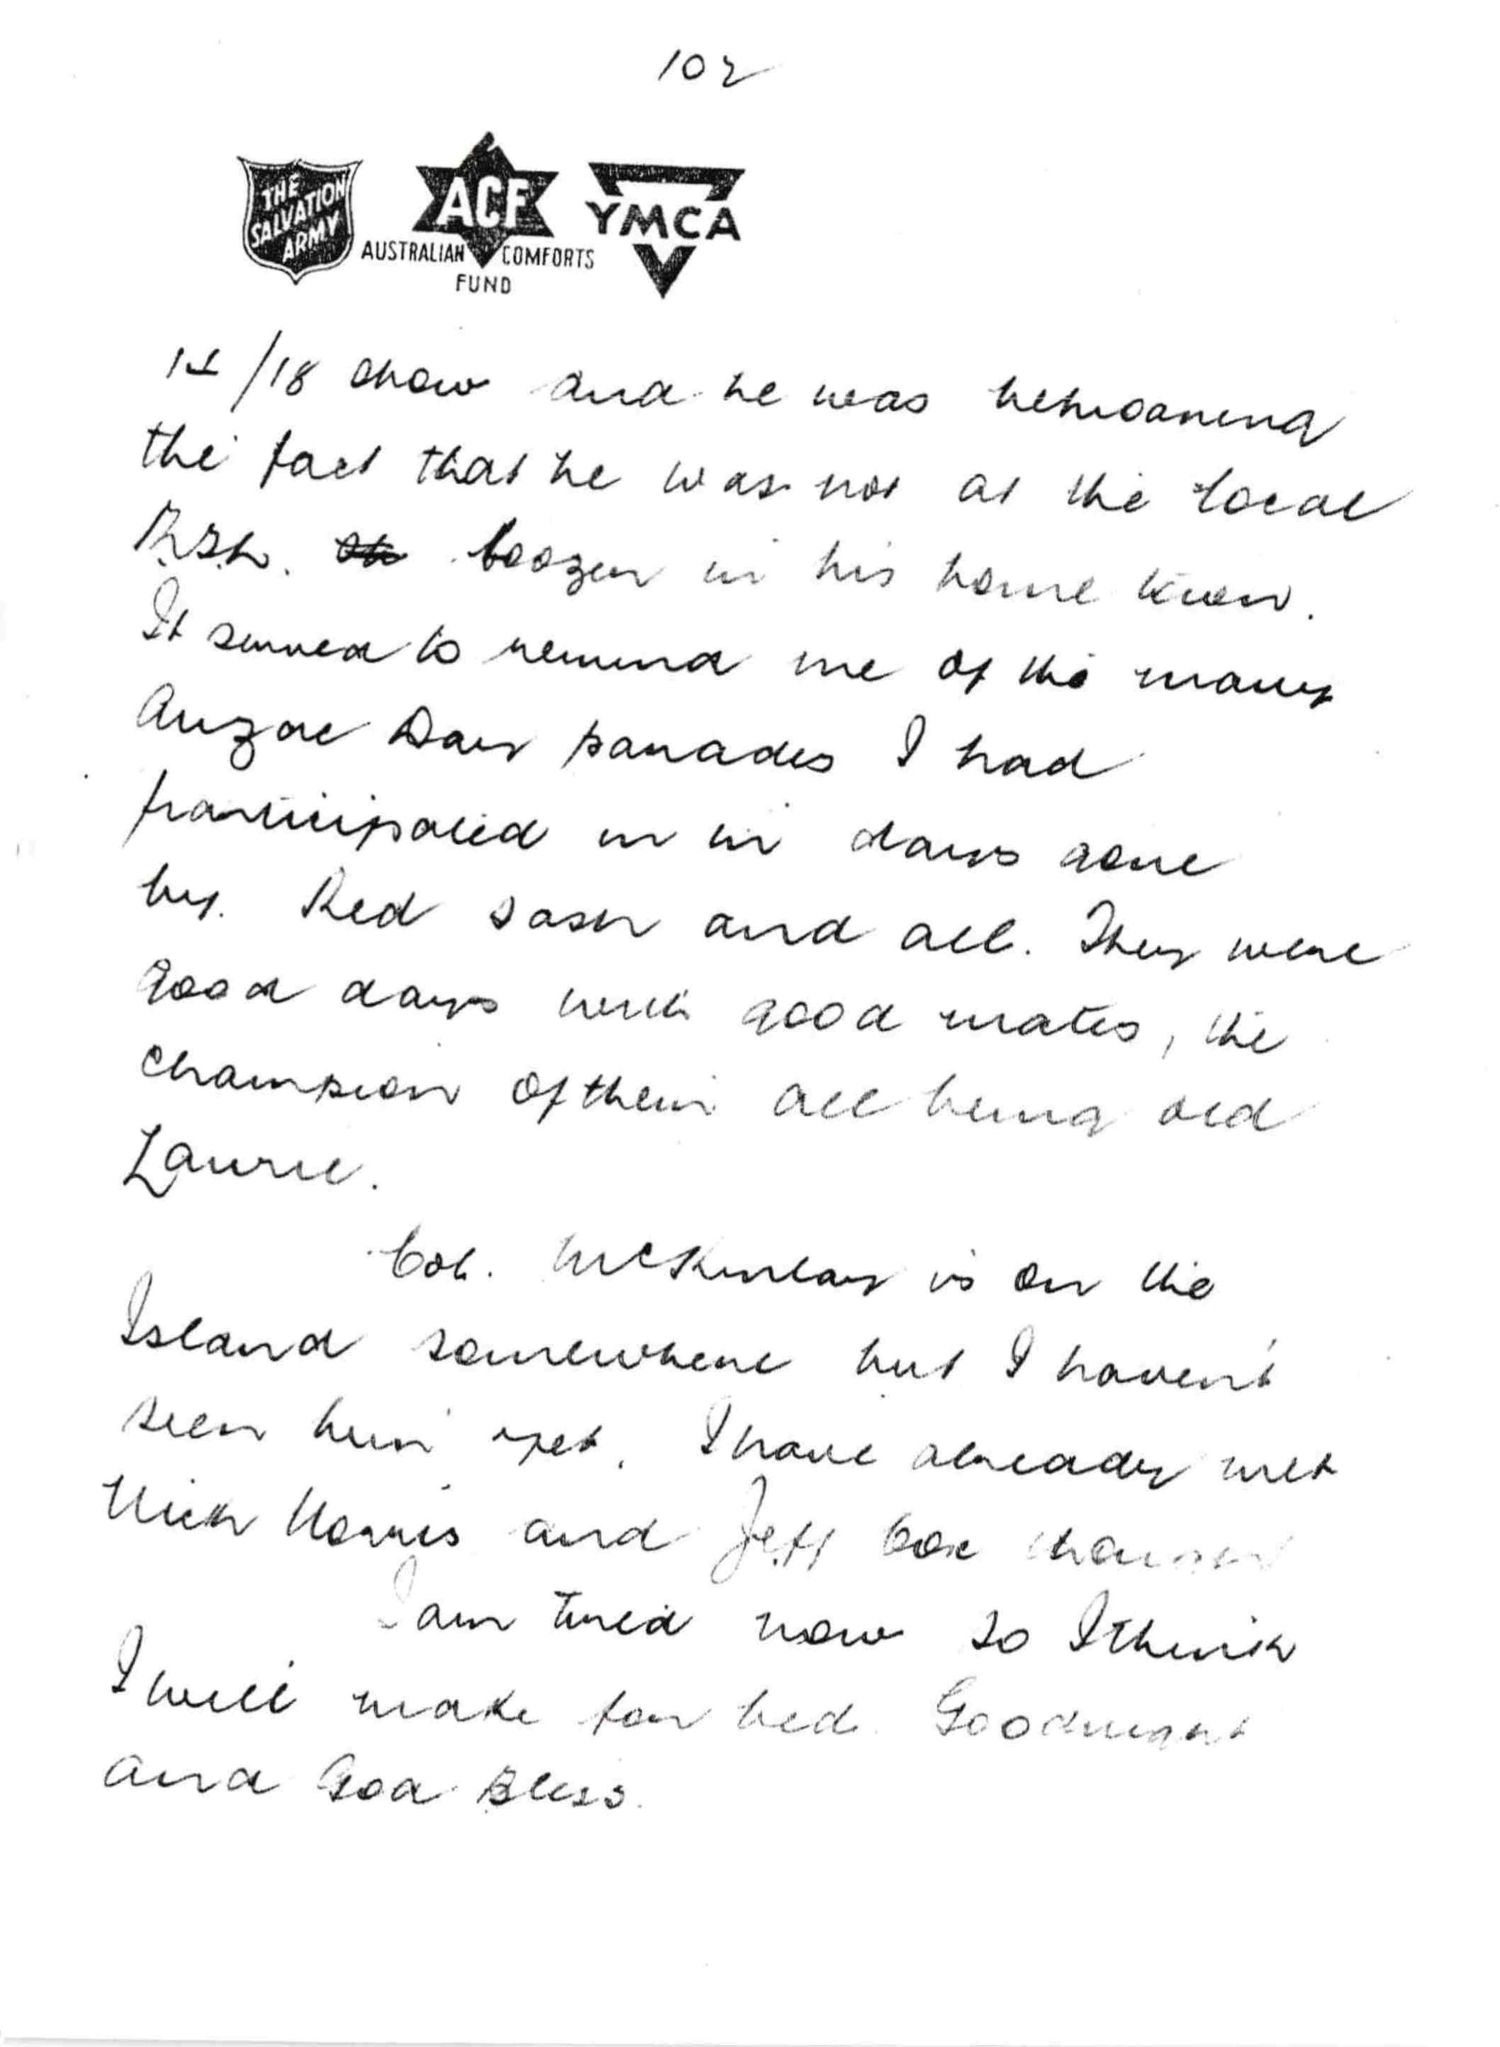 102
THE
SALVATION
ARMY
ACF
AUSTRALIAN COMFORTS
FUND
YMCA
14/18 show and he was bemoaning
the fact that he was not at the local
R.S.L. boozer in his home town.
It served to remind me of the many
Anzac Day parades I had
participated in in days gone
by. Red sash and all. They were
good days with good mates, the
champion of them all being old
Laurie.
Col. McKinlay is on the
Island somewhere but I haven't
seen him yet. I have already met
Nick Norris and Jeff Cox
I am tired now so I think
I will make for bed. Goodnight
and God Bless.